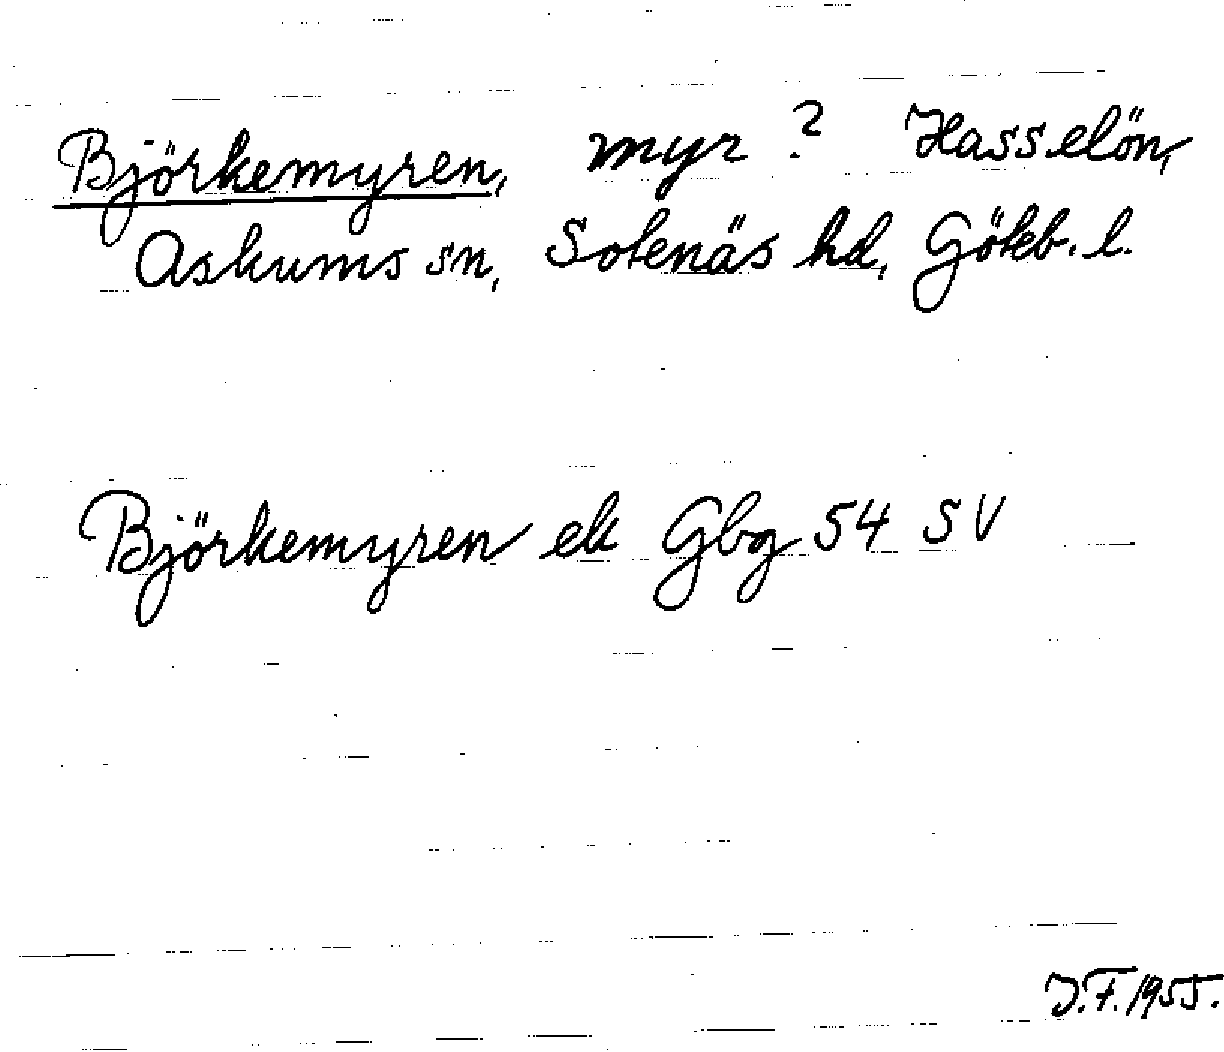 Björkemyren, myr? Hasselön,
Askums sn, Sotenäs hd, Göteb. l.
Björkemyren ek Gbg 54 SV
J.F. 1955.